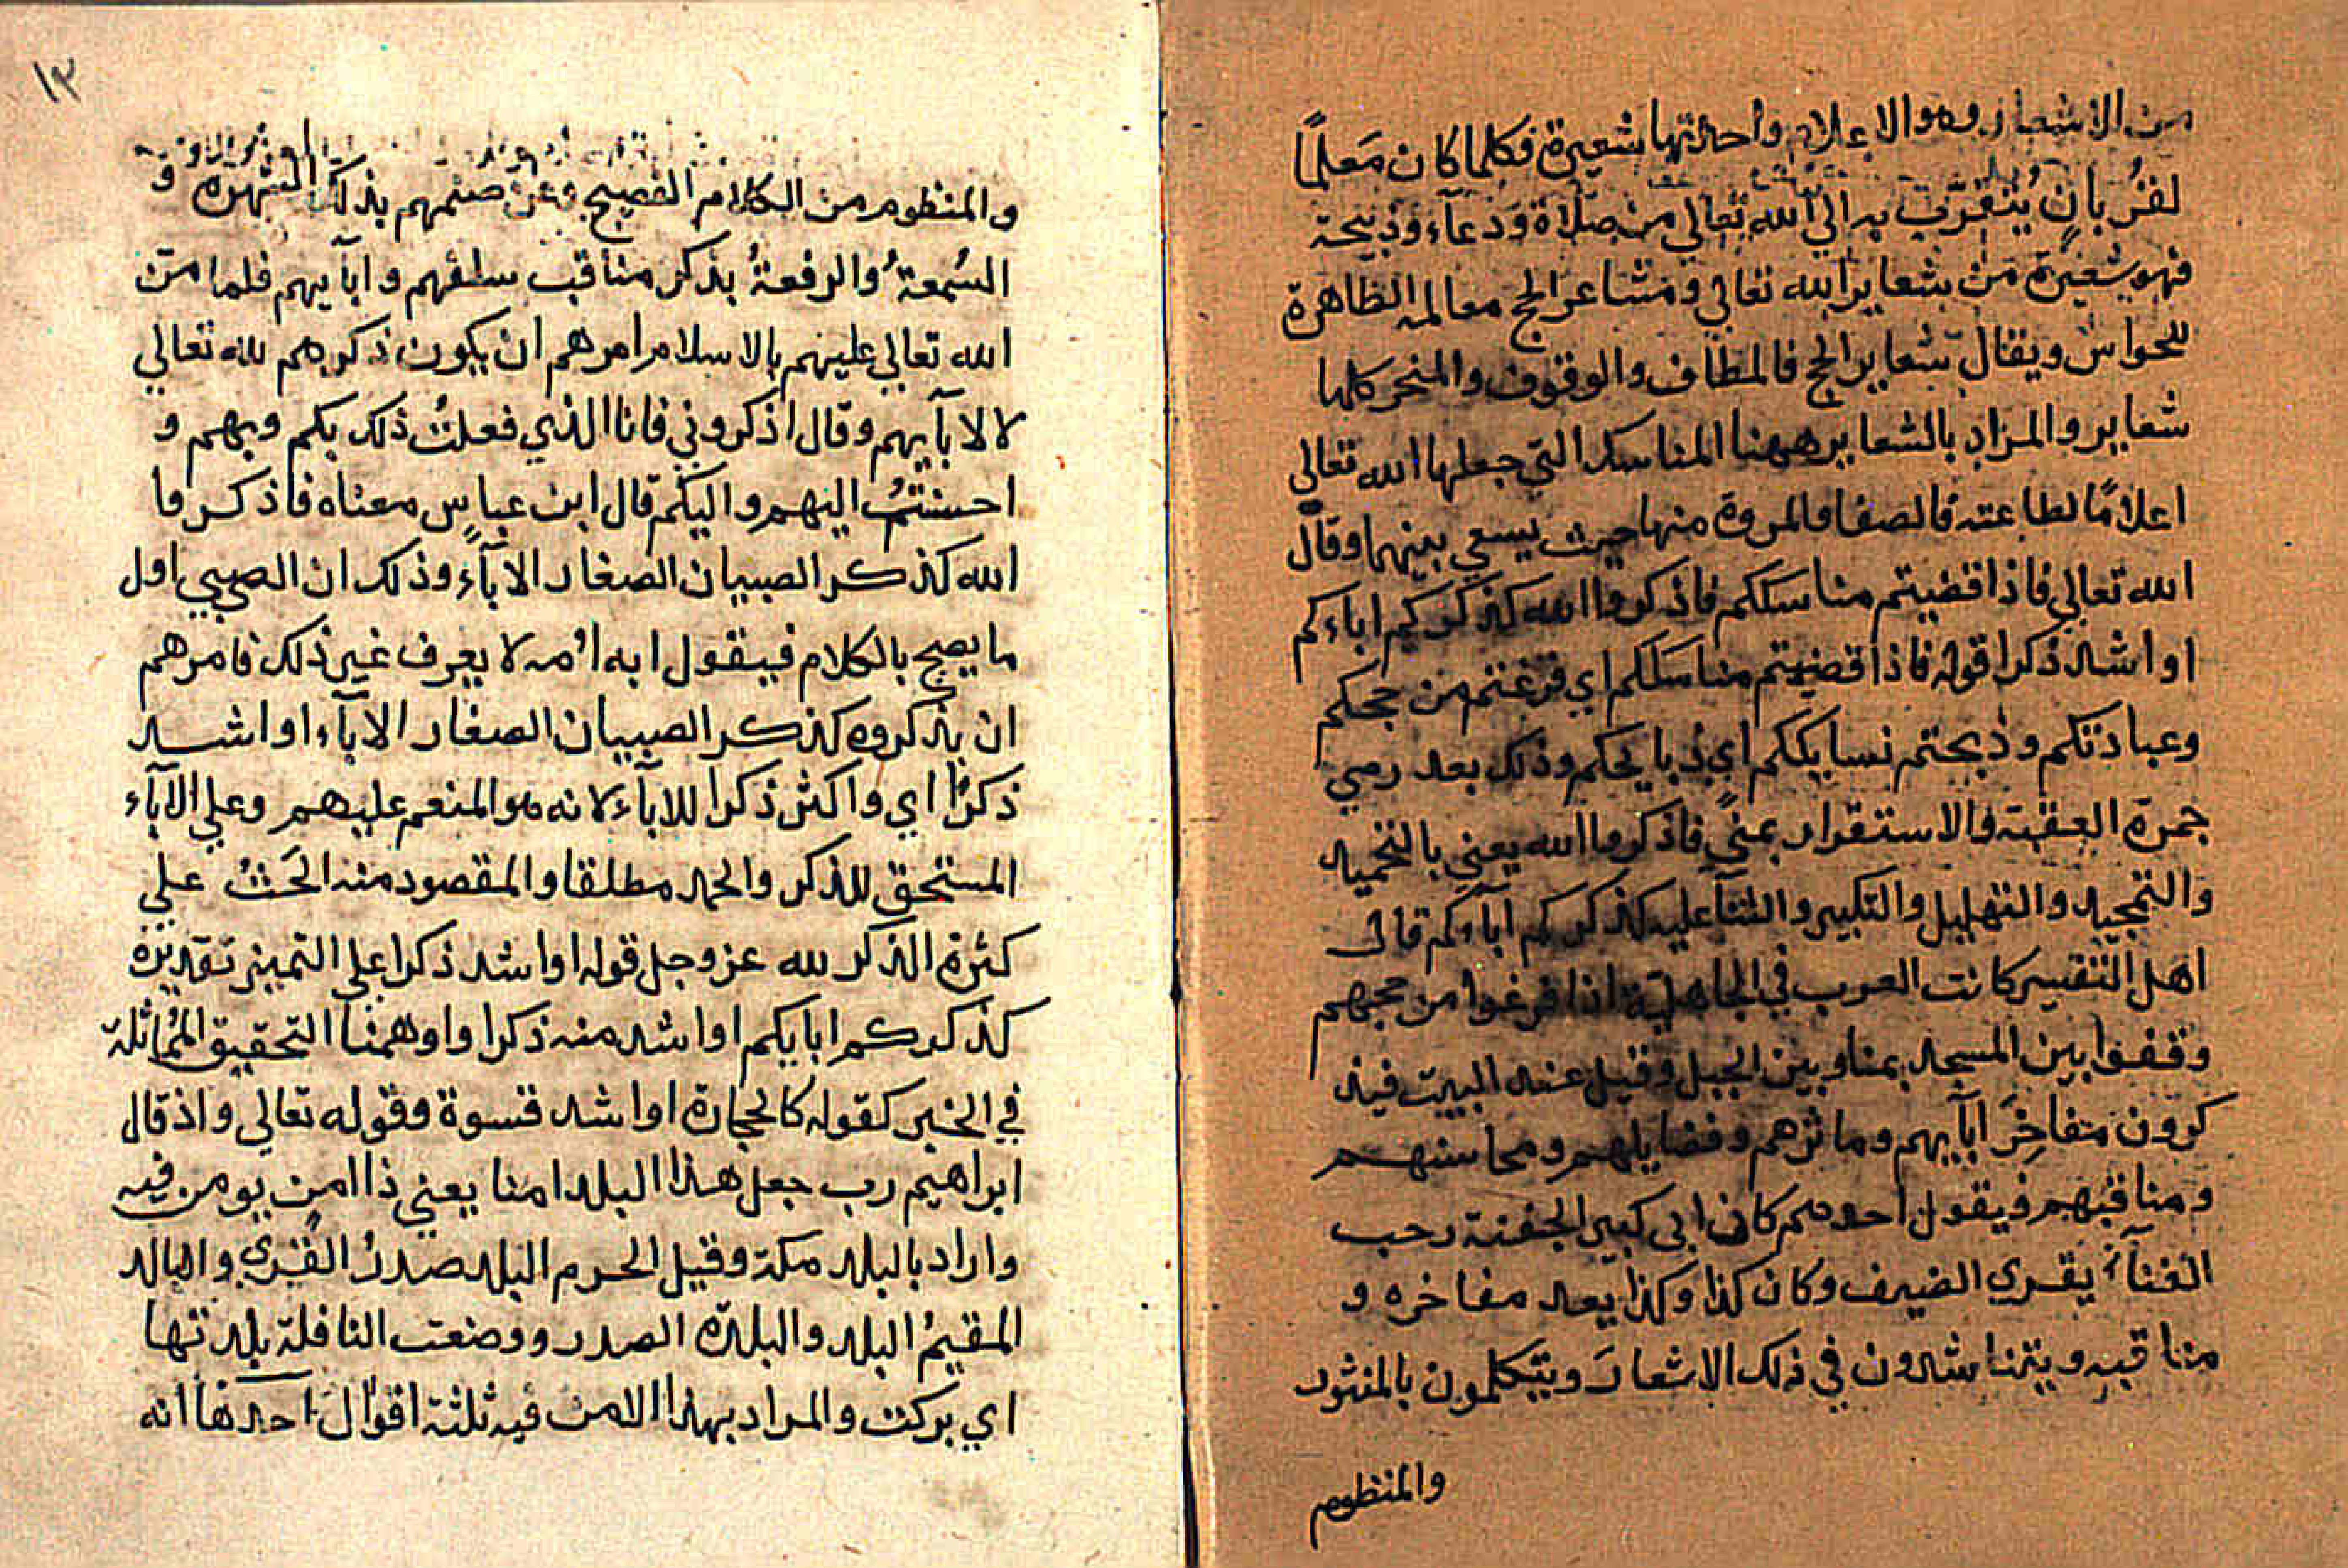 من الاشعار وهو الاعلام واحدتها شعيرة فكلما كان مَعلمًا
لقُربانٍ يُتقرّب به الي الله تعالي من صلاة وَدعآء وَذبيحة
فهو شعيرة من شعاير الله تعالي ومشاعر الحج معالمه الظاهرة
للحواس ويقال شعاير الحج فالمطاف والوقوف والمنحر كلها
شعاير والمراد بالشعاير ههنا المناسك التي جعلها الله تعالي
اعلامًا لطاعته فالصفا والمروة منها حيث يسعي بينهما وقال
الله تعالي فاذا قضيتم مناسككم فاذكروا الله كذكركم اباءكم
او اشد ذكرا قوله فاذا قضيتم مناسككم اي فرغتم من حجكم
وعبادتكم وذبحتم نسايككم اي ذبايحكم وذلك بعد رمي
جمرة العقبة والاستقرار بمني فاذكروا الله يعني بالتحميد
والتمجيد والتهليل والتكبير والثنآ عليه كذكركم ابآءكم قال
اهل التفسير كانت العرب في الجاهلية اذا فرغوا من حجهم
وقفوا بين المسجد بمنا وبين الجبل وقيل عند البيت فيذ
كرون مفاخِرَ ابآيهم وماثرهم وفضايلهم ومحاسنهم
ومناقبهم فيقول احدهم كان ابي كبير الجفنة رحب
الفنآء يقري الضيف وكان كذا وكذا يعد مفاخره و
مناقبه ويتناشدون في ذلك الاشعارَ ويتكلمون بالمنثور
والمنظوم
١٣
والمنظوم من الكلام الفصيح وغرضهم بذلك الشهرة و
السُمعةُ والرفعةُ بذكر مناقب سلفهم وابآيهم فلما منّ
الله تعالي عليهم بالاسلام امرهم ان يكون ذكرهم لله تعالي
لا لابآيهم وقال اذكروني فانا الذي فعلتُ ذلك بكم وبهم و
احسنتُ اليهم واليكم قال ابن عباسٍ معناه فاذكروا
الله كذكر الصبيان الصغار الابآء وذلك ان الصبي اول
ما يصح بالكلام فيقول ابه امه لا يعرف غير ذلك فامرهم
ان يذكروه كذكر الصبيان الصغار الابآء او اشد
ذكرًا اي واكثر ذكرا للابآء لانه هو المنعم عليهم وعلي الابآء
المستحق للذكر والحمد مطلقا والمقصود منه الحَثُ علي
كثرة الذكر لله عز وجل قوله او اشد ذكرا علي التمييز تقديره
كذكركم ابايكم او اشد منه ذكرا واو ههنا التحقيق المُماثلة
في الخبر كقوله كالحجارة او اشد قسوة وقوله تعالي واذ قال
ابراهيم رب جعل هذا البلد امنا يعني ذا امن يومن فيه
واراد بالبلد مكة وقيل الحرم البلد صدرُ القُري والبالد
المقيمُ البلد والبلدة الصدر ووضعت النافلة بلدتها
اي بركت والمراد بهذا الامن فيه ثلثة اقوال احدها انه